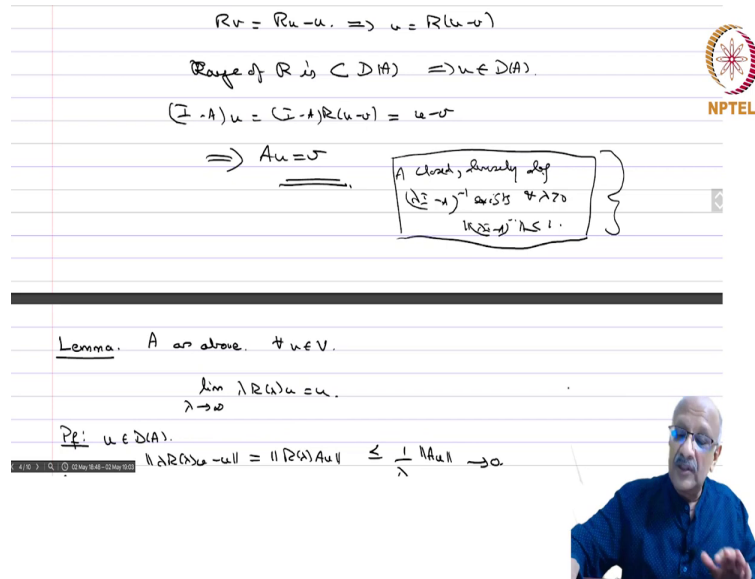 Rv = Ru - u. ⟹ u = R(u-v)
Range of R is ⊂ D(A) ⟹ u ∈ D(A).
NPTEL
(I - A)u = (I - A)R(u-v) = u - v
⟹ Au = v
A closed, densely def
(λI - A)⁻¹ exists ∀ λ>0
‖(λI - A)⁻¹‖ ≤ 1.
Lemma. A as above. ∀ u ∈ V.
lim λR(λ)u = u.
λ→∞
Pf: u ∈ D(A).
‖λR(λ)u - u‖ = ‖R(λ)Au‖ ≤ 1/λ ‖Au‖ → 0
4/10 02 May 18:48 - 02 May 19:03